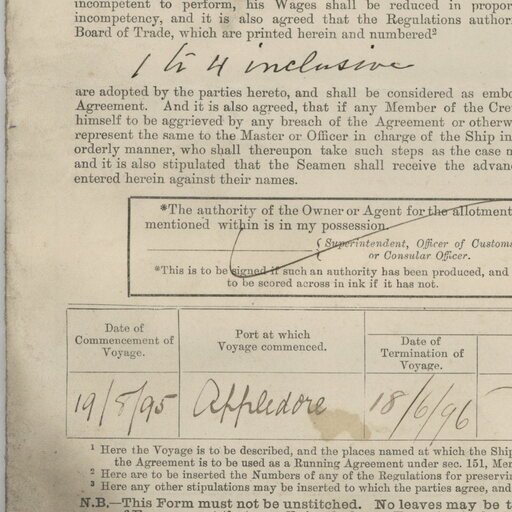 incompetent to perform, his Wages shall be reduced in
incompetency, and it is also agreed that the Regulations
Board of Trade, which are printed herein and numbered²
1 to 4 inclusive
are adopted by the parties hereto, and shall be considered as
Agreement. And it is also agreed, that if any Member of the
himself to be aggrieved by any breach of the Agreement or
represent the same to the Master or Officer in charge of the Ship
orderly manner, who shall thereupon take such steps as the case
and it is also stipulated that the Seamen shall receive the
entered herein against their names.
*The authority of the Owner or Agent for the allotment
mentioned within is in my possession.
Superintendent, Officer of Customs
or Consular Officer.
*This is to be signed if such an authority has been produced, and
to be scored across in ink if it has not.
Date of Commencement of Voyage.
Port at which Voyage commenced.
Date of Termination of Voyage.
19/8/95 Appledore 18/6/96
¹ Here the Voyage is to be described, and the places named at which the Ship
the Agreement is to be used as a Running Agreement under sec. 151,
² Here are to be inserted the Numbers of any of the Regulations for
³ Here any other stipulations may be inserted to which the parties agree, and
N.B.—This Form must not be unstitched. No leaves may be